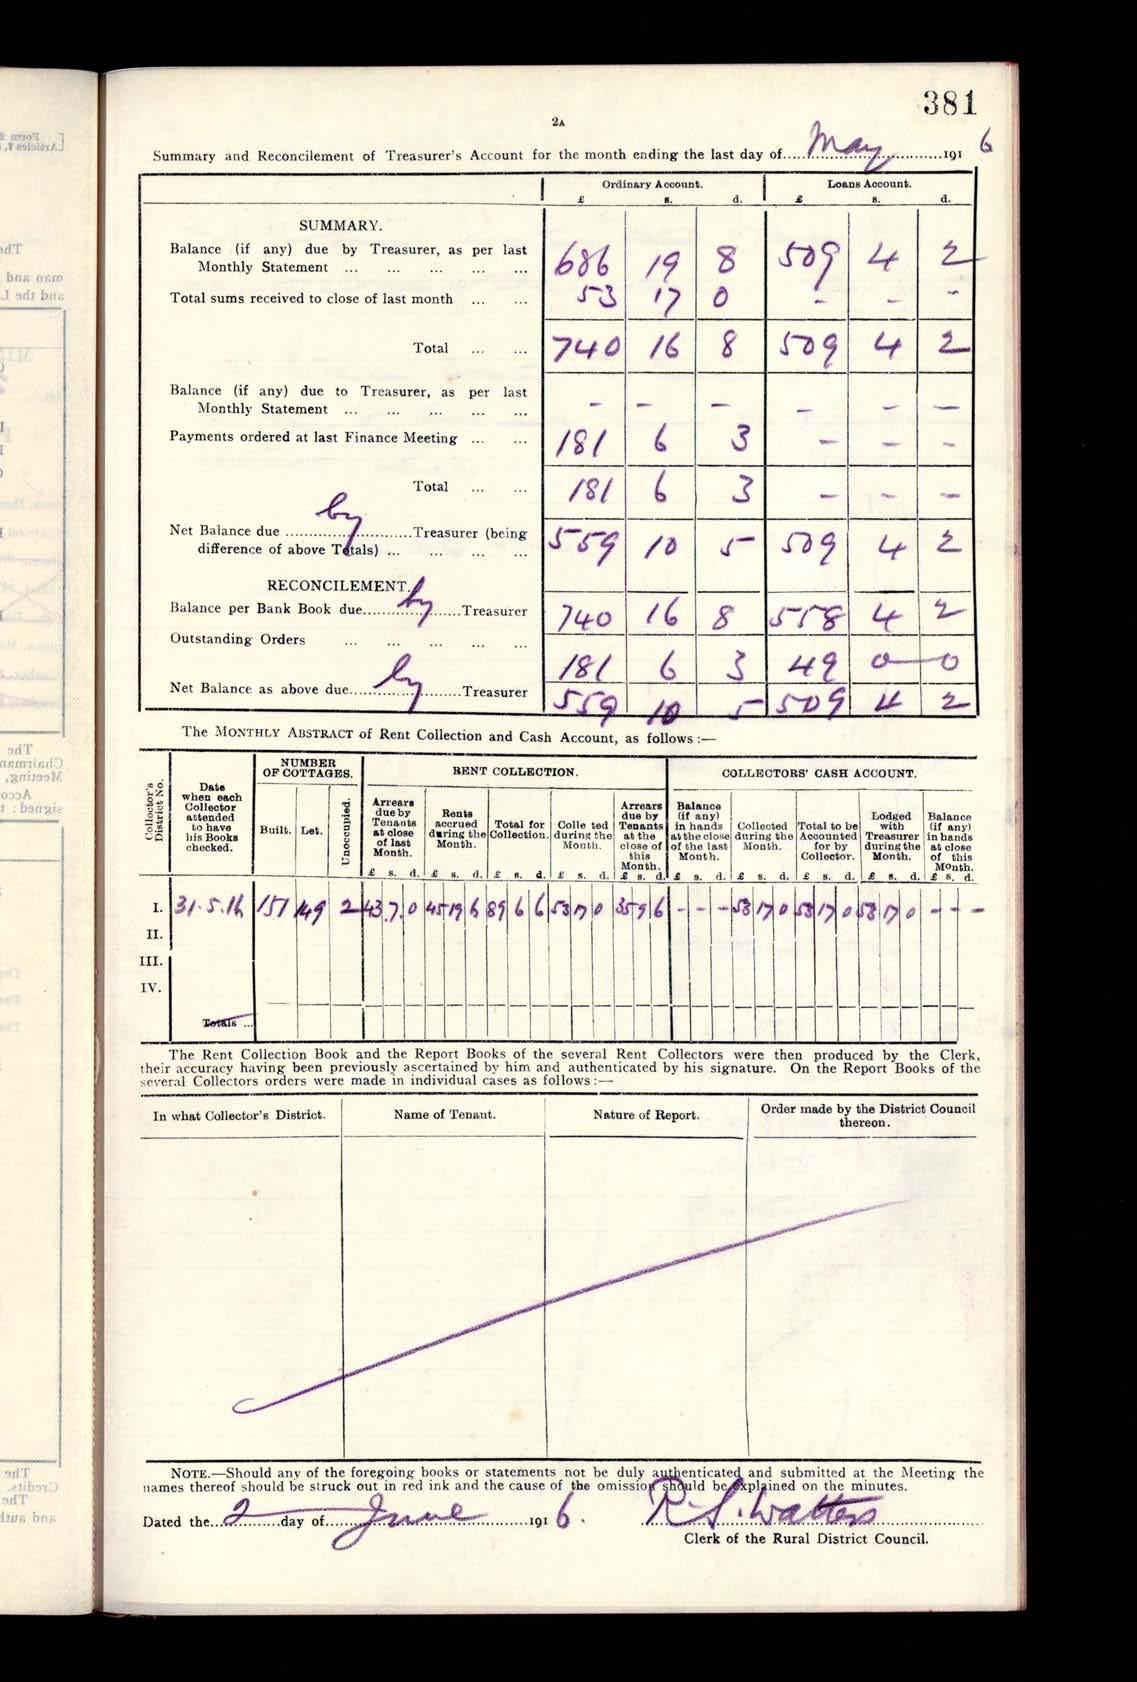 381
2A
Summary and Reconcilement of Treasurer's Account for the month ending the last day of.....May.....1916
Ordinary Account. Loans Account.
£ s. d. £ s. d.
SUMMARY.
Balance (if any) due by Treasurer, as per last
Monthly Statement ... ... ... ... ... 686 19 8 509 4 2
Total sums received to close of last month ... ... 53 17 0 - - -
Total ... ... 740 16 8 509 4 2
Balance (if any) due to Treasurer, as per last
Monthly Statement ... ... ... ... ... - - - - - -
Payments ordered at last Finance Meeting ... ... 181 6 3 - - -
Total ... ... 181 6 3 - - -
Net Balance due .....by.....Treasurer (being
difference of above Totals) ... ... ... ... 559 10 5 509 4 2
RECONCILEMENT.
Balance per Bank Book due.....by.....Treasurer 740 16 8 558 4 2
Outstanding Orders ... ... ... ... ... 181 6 3 49 0 0
Net Balance as above due.....by.....Treasurer 559 10 5 509 4 2
The MONTHLY ABSTRACT of Rent Collection and Cash Account, as follows :—
Collector's District No.
Date when each Collector attended to have his Books checked.
NUMBER OF COTTAGES.
Built. Let. Unoccupied.
RENT COLLECTION.
Arrears due by Tenants at close of last Month.
Rents accrued during the Month.
Total for Collection.
Colle ted during the Month.
Arrears due by Tenants at the close of this Month.
COLLECTORS' CASH ACCOUNT.
Balance (if any) in hands at the close of the last Month.
Collected during the Month.
Total to be Accounted for by Collector.
Lodged with Treasurer during the Month.
Balance (if any) in hands at close of this Month.
£ s. d. £ s. d. £ s. d. £ s. d. £ s. d. £ s. d. £ s. d. £ s. d. £ s. d. £ s. d.
I. 31.5.16 151 149 2 43 7 0 45 19 6 89 6 6 53 17 0 35 9 6 - - - 53 17 0 53 17 0 53 17 0 - - -
II.
III.
IV.
Totals ...
The Rent Collection Book and the Report Books of the several Rent Collectors were then produced by the Clerk,
their accuracy having been previously ascertained by him and authenticated by his signature. On the Report Books of the
several Collectors orders were made in individual cases as follows :—
In what Collector's District. Name of Tenant. Nature of Report. Order made by the District Council
thereon.
NOTE.—Should any of the foregoing books or statements not be duly authenticated and submitted at the Meeting the
names thereof should be struck out in red ink and the cause of the omission should be explained on the minutes.
Dated the...2.....day of.....June.....1916. R. S. Watters
Clerk of the Rural District Council.